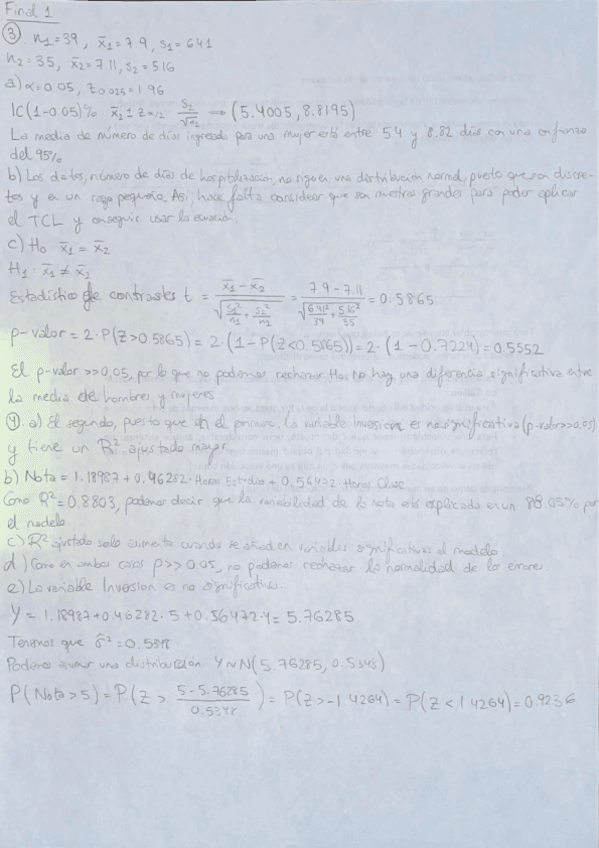 Final 1
③ n₁=39, x̄₁=7.9, s₁=6.41
n₂=35, x̄₂=7.11, s₂=5.16
a) α=0.05, z₀.₀₂₅=1.96
IC(1-0.05)% x̄₂ ± z_α/₂ s₂/√n₂ → (5.4005, 8.8195)
La media de número de días ingresado para una mujer está entre 5.4 y 8.82 días con una confianza
del 95%
b) Los datos, número de días de hospitalización, no siguen una distribución normal, puesto que son discre-
tos y en un rango pequeño. Así, hace falta considerar que son muestras grandes para poder aplicar
el TCL y conseguir usar la ecuación.
c) H₀ x̄₁ = x̄₂
H₁: x̄₁ ≠ x̄₂
Estadístico de contraste t = (x̄₁ - x̄₂)/√(s₁²/n₁ + s₂²/n₂) = (7.9 - 7.11)/√(6.41²/39 + 5.16²/35) = 0.5865
p-valor = 2·P(Z>0.5865) = 2·(1-P(Z<0.5865)) = 2·(1-0.7224) = 0.5552
El p-valor >> 0,05, por lo que no podemos rechazar H₀. No hay una diferencia significativa entre
la media de hombres y mujeres
④. a) El segundo, puesto que en el primero, la variable Inversion es no significativa (p-valor>>0.05)
y tiene un R² ajustado mayor.
b) Nota = 1.18987 + 0.46282·Horas Estudio + 0,56472·Horas Clase
Como R²=0.8803, podemos decir que la variabilidad de la nota está explicada en un 88.03% por
el modelo.
c) R² ajustado solo aumenta cuando se añaden variables significativas al modelo.
d) Como en ambos casos p>>0.05, no podemos rechazar la normalidad de los errores.
e) La variable Inversion es no significativa.
Y = 1.18987+0.46282·5+0.56472·4 = 5.76285
Tenemos que σ̂²=0.5348
Podemos asumir una distribución Y~N(5.76285, 0.5348)
P(Nota>5) = P(Z > (5-5.76285)/0.5348) = P(Z>-1.4264) = P(Z<1.4264) = 0.9236